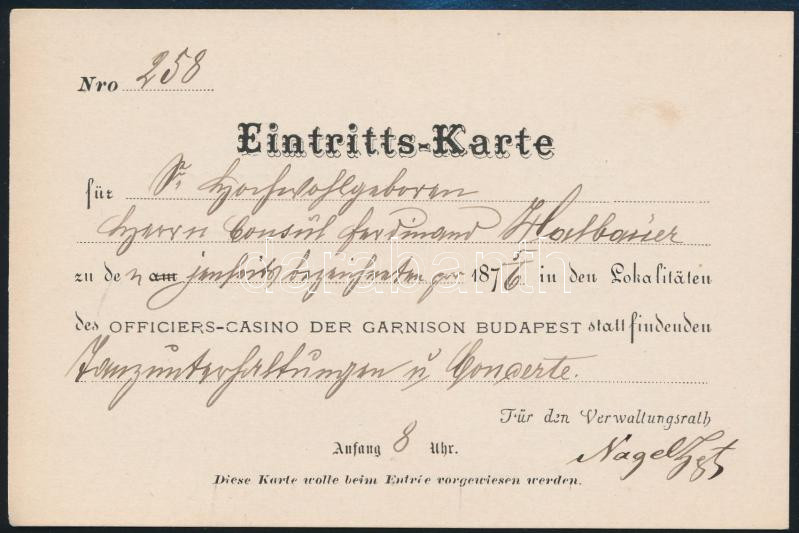 Nro 258
Eintritts-Karte
für Sr Hochwohlgeboren
Herrn Consul Ferdinand Halbauer
zu den am jenseits bezeichneten pro 187 5/6 in den Lokalitäten
des OFFICIERS-CASINO DER GARNISON BUDAPEST stattfindenden
Tanzunterhaltungen u Concerte.
Für den Verwaltungsrath
Anfang 8 Uhr.
Nagel
Diese Karte wolle beim Entrée vorgewiesen werden.
darabanth